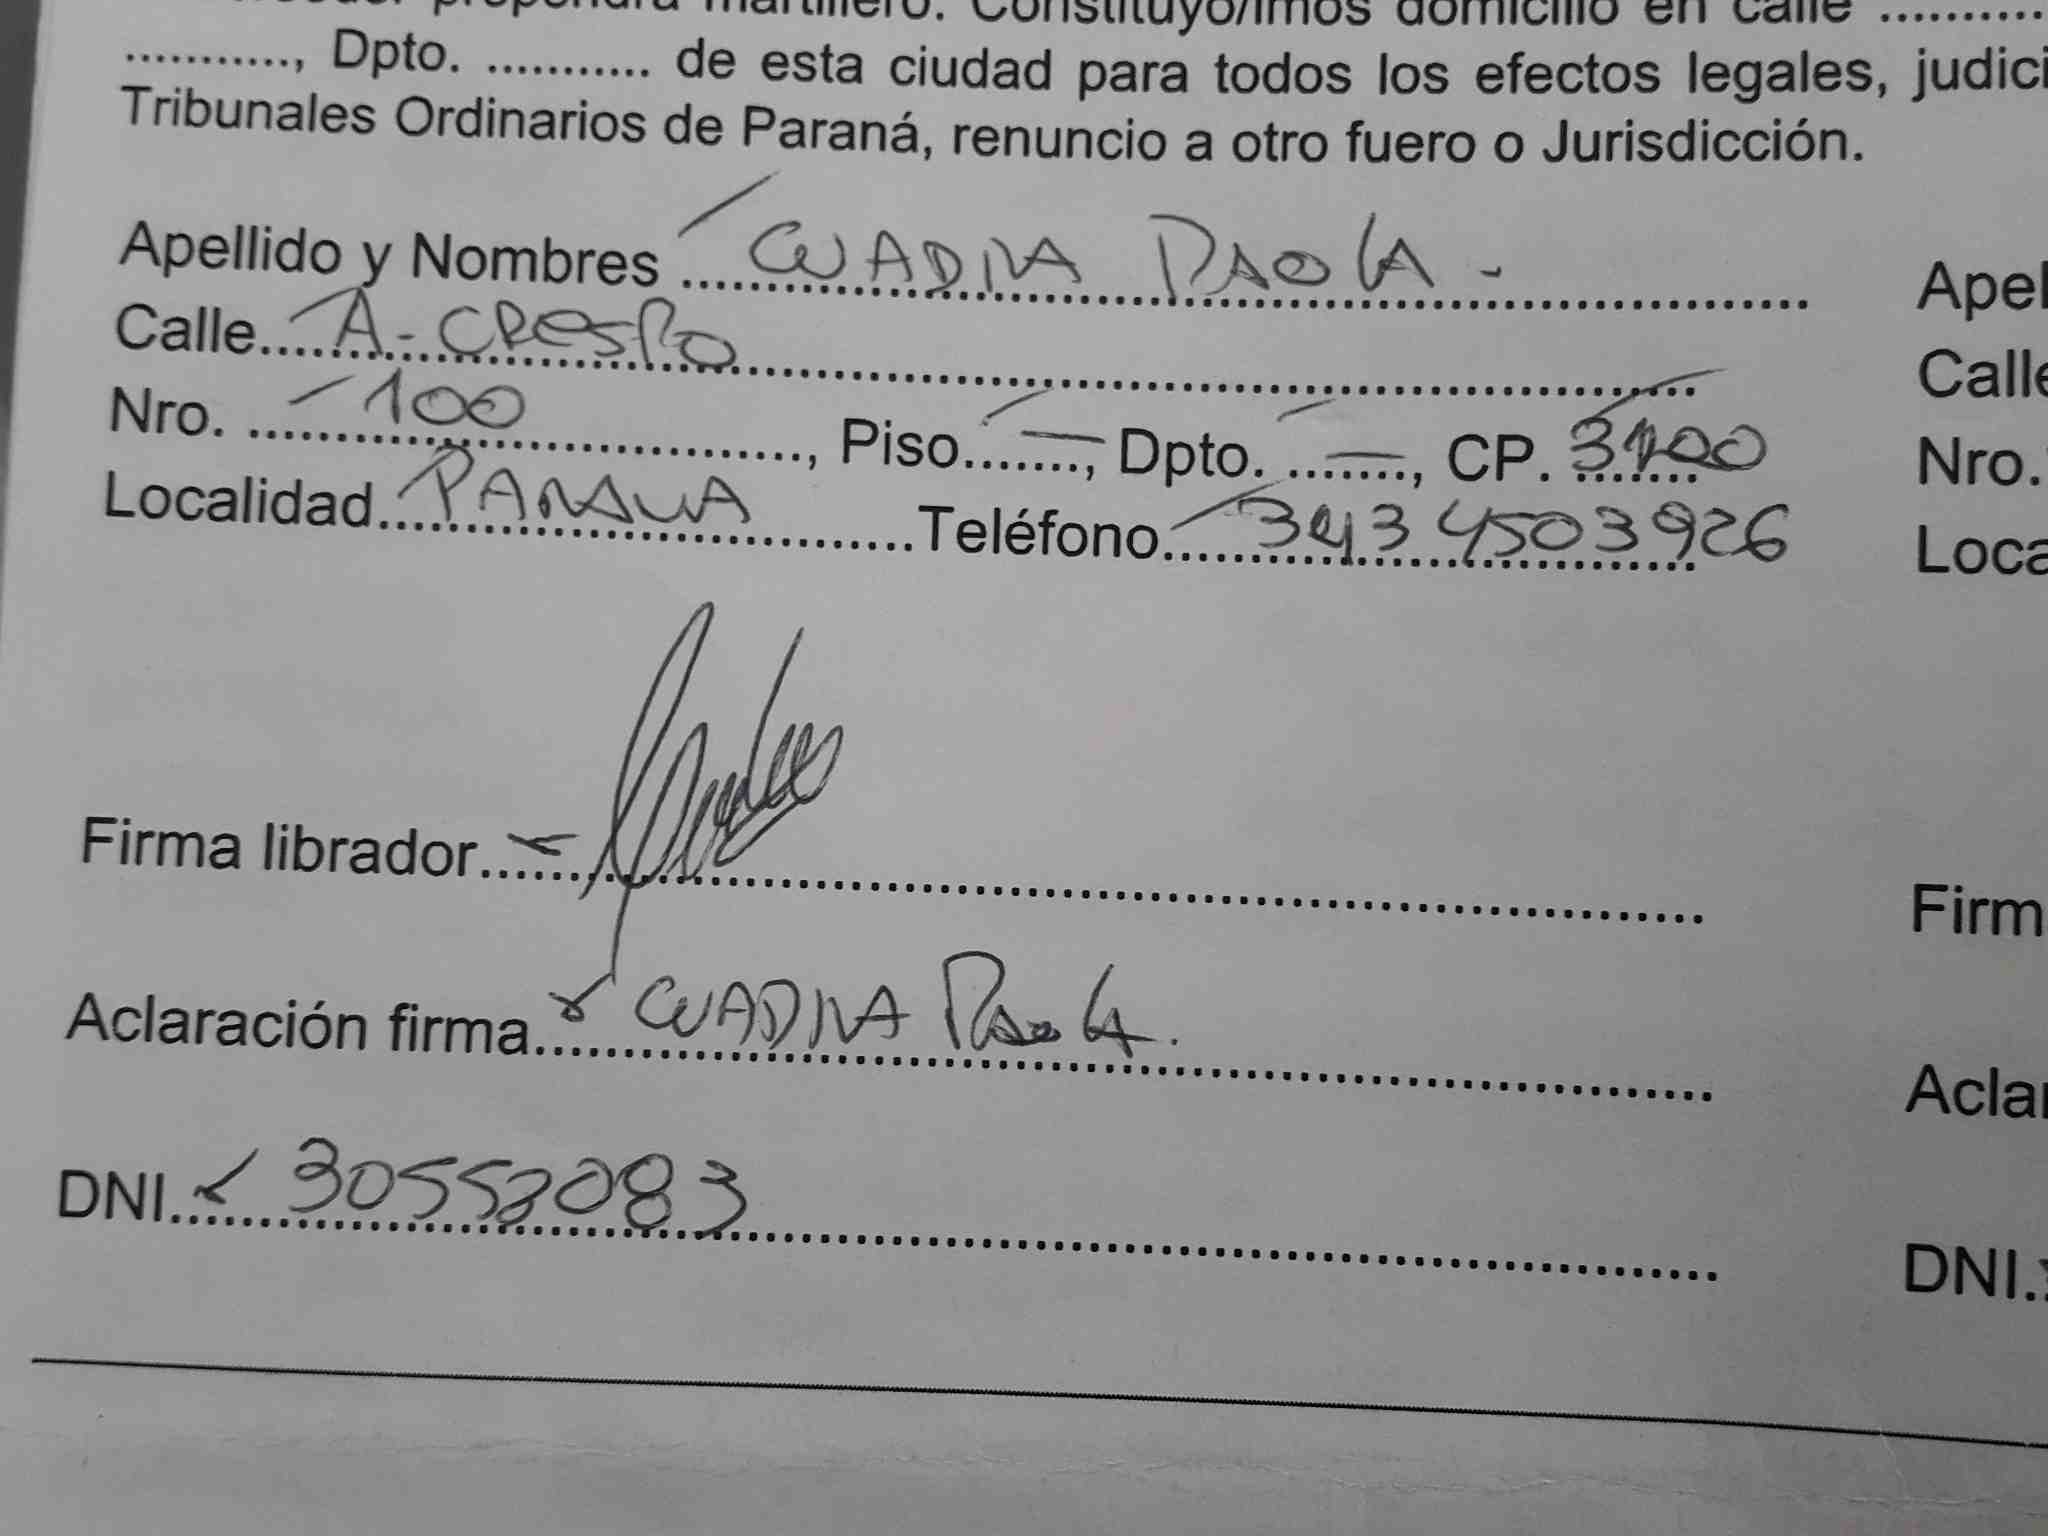 propondrá martillero. Constituyo/imos domicilio en calle ..........
............, Dpto. ........... de esta ciudad para todos los efectos legales, judici
Tribunales Ordinarios de Paraná, renuncio a otro fuero o Jurisdicción.
Apellido y Nombres CUADRA PAOLA - Apel
Calle A. CRESPO Calle
Nro. 100, Piso — , Dpto. — , CP. 3100 Nro.
Localidad PARANA Teléfono 343 4503926 Loca
Firma librador Firm
Aclaración firma CUADRA PAOLA. Aclar
DNI. 30552083 DNI.